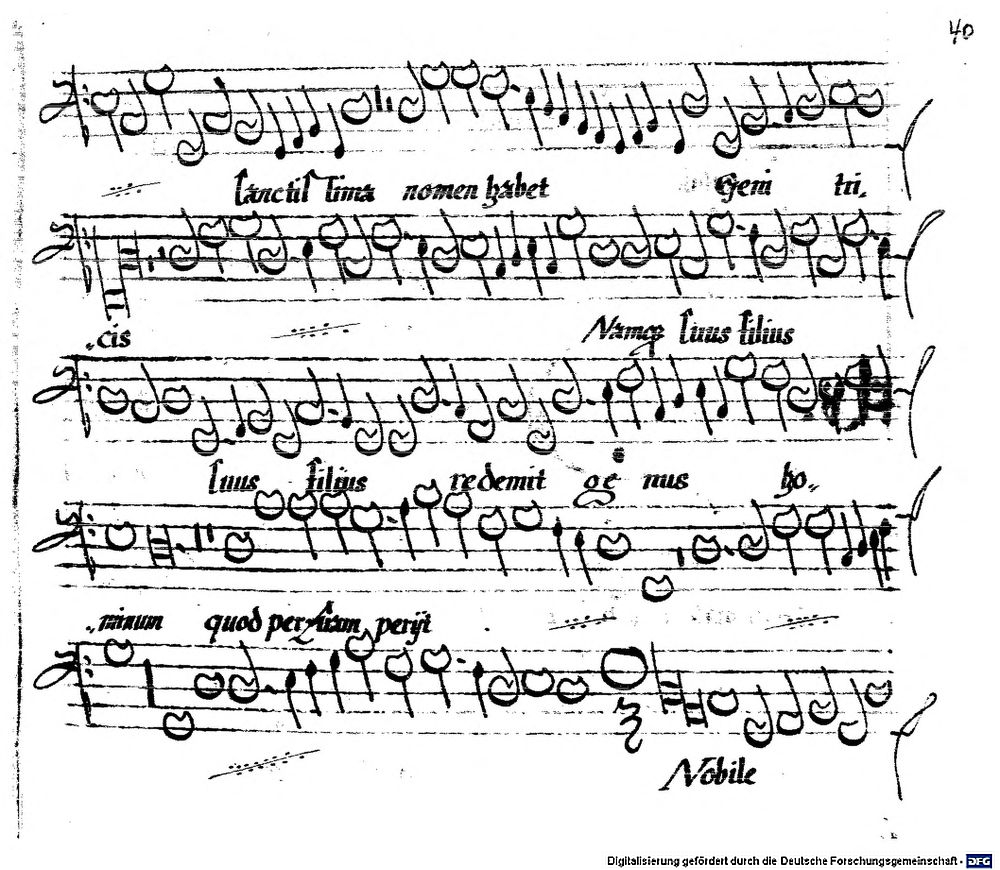 40
sanctis sima nomen habet Geni tri.
.cis Namq suus filius
suus filius redemit ge nus ho.
.minum quod per perijt
Nobile
Digitalisierung gefördert durch die Deutsche Forschungsgemeinschaft - DFG